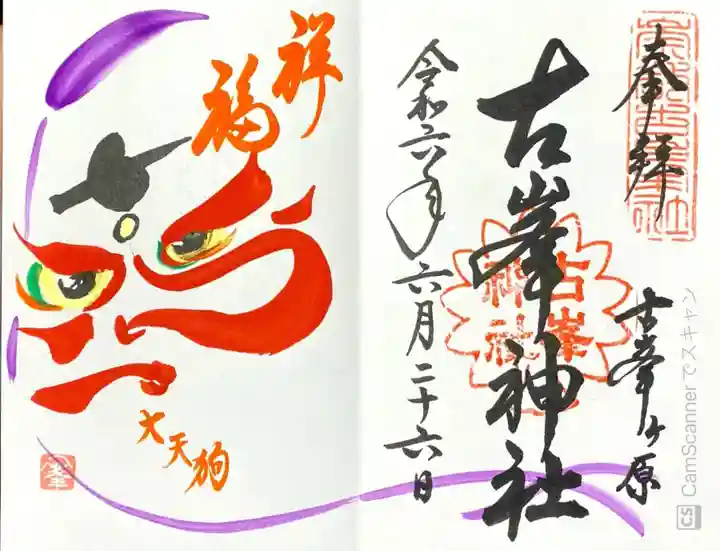 奉拝
古峯ヶ原
古峯神社
古峯神社
令和六年六月二十六日
祥福
大天狗
CS CamScannerでスキャン